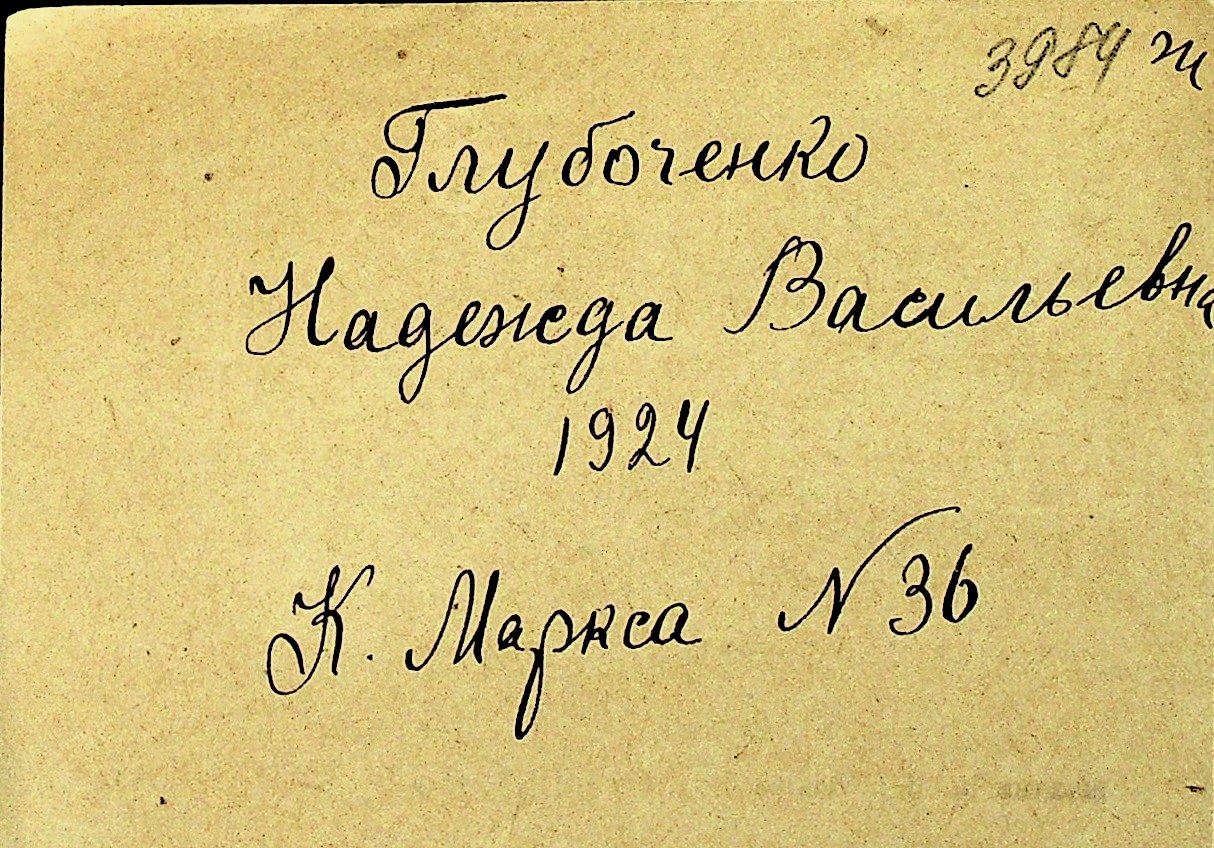 3984 ж
Глубоченко
Надежда Васильевна
1924
К. Маркса N 36